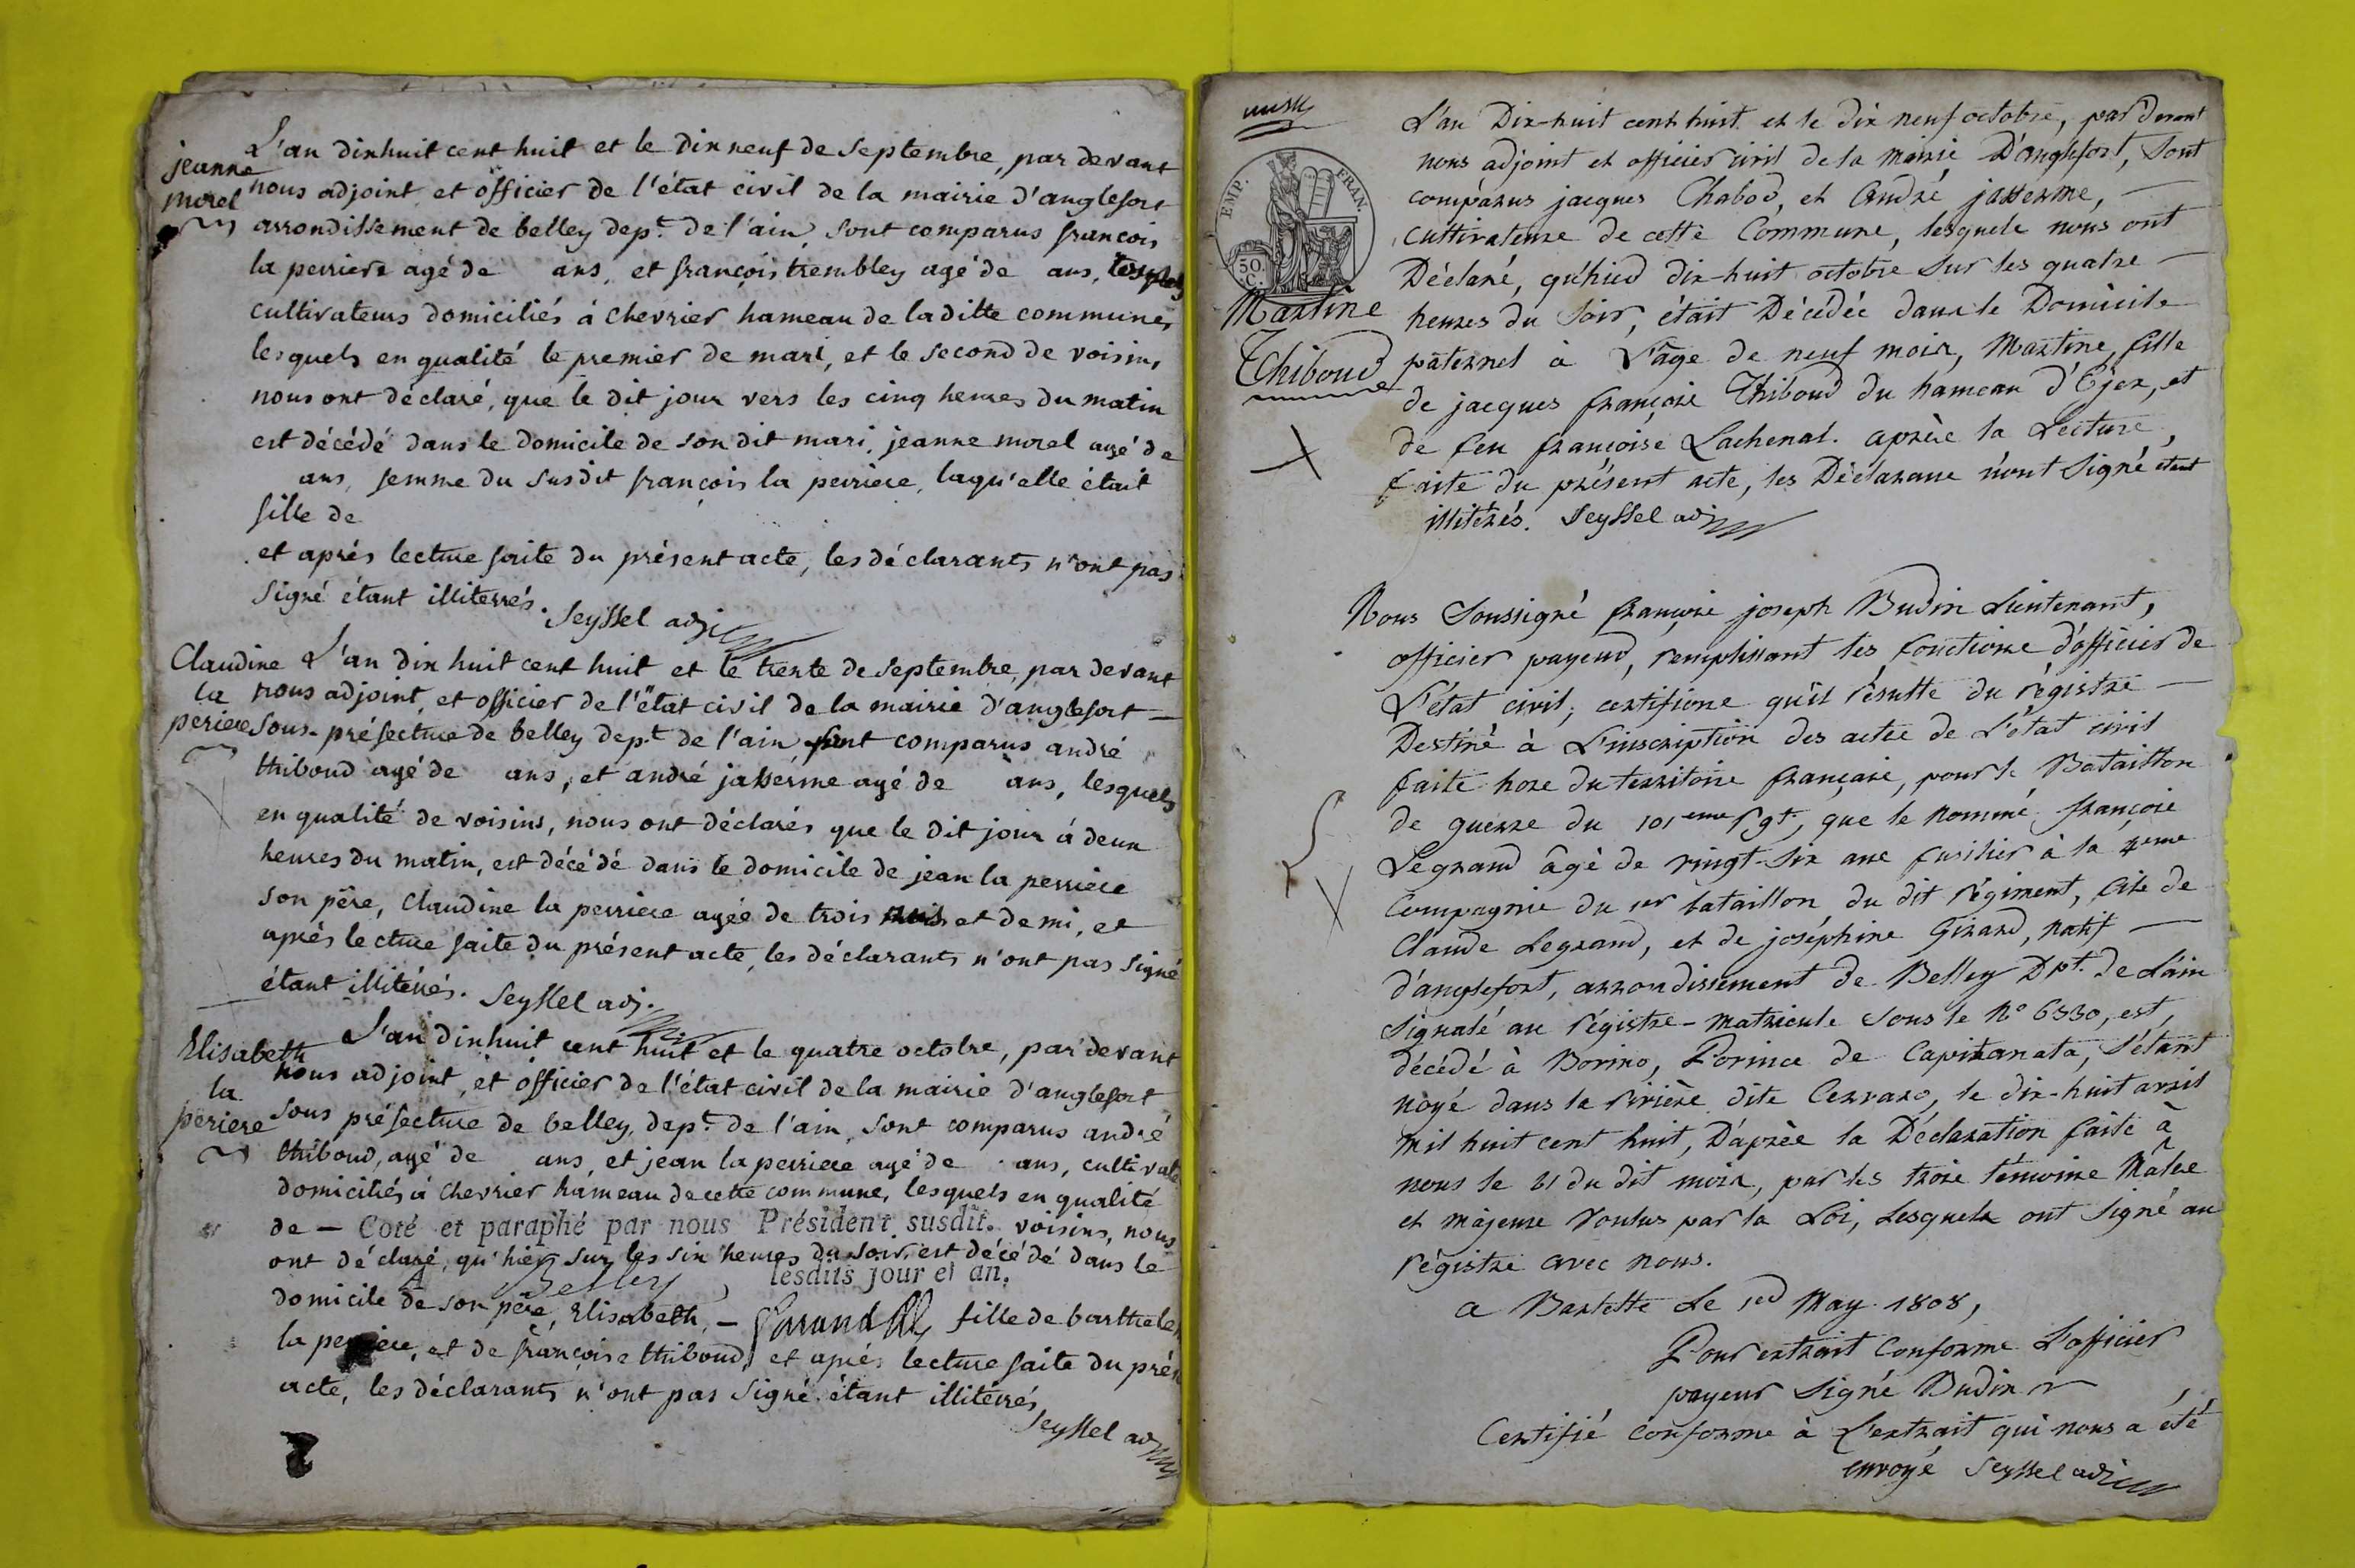 jeanne
morel
L'an dixhuit cent huit et le dix neuf de Septembre, par devant
nous adjoint, et officier de l'état civil de la mairie d'anglefort
arrondissement de belley dep.t de l'ain, sont comparus françois
la perriere agé de ans, et françois trembley agé de ans,
cultivateurs domiciliés à chevrier hameau de la ditte commune,
lesquels en qualité le premier de mari, et le second de voisin,
nous ont déclaré, que le dit jour vers les cinq heures du matin
est décédé dans le domicile de son dit mari, jeanne morel agé de
ans, femme du susdit françois la perriere, laqu'elle était
fille de
et aprés lecture faite du présent acte, les déclarants n'ont pas
signé étant illiterrés. Seyssel adj
Claudine
la
periere
L'an dix huit cent huit et le trente de septembre, par devant
nous adjoint, et officier de l'état civil de la mairie d'anglefort —
sous-préfecture de belley dep.t de l'ain sont comparus andré
thiboud agé de ans, et andré jasserme agé de ans, lesquels
en qualité de voisins, nous ont déclarés que le dit jour à deux
heures du matin, est décédé dans le domicile de jean la perriere
son père, Claudine la perriere agée de trois mois et demi, et
aprés lecture faite du présent acte, les déclarants n'ont pas signé
étant illitérrés. Seyssel adj.
Elisabeth
la
periere
L'an dixhuit cent huit et le quatre octobre, par devant
nous adjoint, et officier de l'état civil de la mairie d'anglefort
sous préfecture de belley, dep.t de l'ain, sont comparus andré
thiboud, agé de ans, et jean la perriere agé de ans, cultivate
domiciliés à chevrier hameau de cette commune, lesquels en qualité
de — Coté et paraphé par nous Président susdit. voisins, nous
ont déclaré, qu'hier sur les six heures du soir, est décédé dans le
A Belley, lesdits jour et an.
domicile de son père, Elisabeth, — fille de barthele
la perriere, et de françoise thiboud, et aprés lecture faite du prés
acte, les déclarants n'ont pas signé étant illitérrés
Seyssel adj
EMP. FRAN.
50.
C.
Martine
Thiboud
L'an Dix-huit cent huit et le dix neuf octobre, par devant
nous adjoint et officier civil de la Mairie D'anglefort, sont
comparus jacques Chabod, et André jasserme, —
cultivateurs de cette Commune, lesquels nous ont
Déclaré, qu'hier dix-huit octobre sur les quatre —
heures du soir, était Décédée dans le Domicile
paternel à l'âge de neuf mois, Martine, fille
de jacques françois Thiboud du hameau d', et
de feu françoise Lachenal. après la Lecture,
faite du présent acte, les Déclarans n'ont signé étant
illitérés. Seyssel adj
Nous Soussigné françois joseph Budin Lieutenant,
officier payeur, remplissant les fonctions d'officier de
L'état civil, certifions qu'il résulte du régistre —
Destiné à L'inscription des actes de L'état civil
faits hors du territoire français, pour le Bataillon
de guerre du 101eme rgt., que le nommé françois
Legrand âgé de vingt-six ans fusilier à la 4eme
Compagnie du 1er bataillon du dit régiment, fils de
Claude Legrand, et de joséphine Girard, natif —
d'anglefort, arrondissement de Belley Dpt. de L'ain
signalé au régistre-matricule sous le N° 6330, est,
décédé à Borino, Porince de Capitanata, s'étant
noyé dans la rivière dite Cerraro, le dix-huit avril
mil huit cent huit, D'après la Déclaration faite à
nous le 21 du dit mois, par les trois témoins Mâles
et majeurs voulus par la Loi, Lesquels ont signé au
régistre avec nous.
a Barlette Le 1er May 1808,
Pour extrait Conforme L'officier
payeur Signé Budin
Certifié conforme à L'extrait qui nous a été
envoyé Seyssel adj